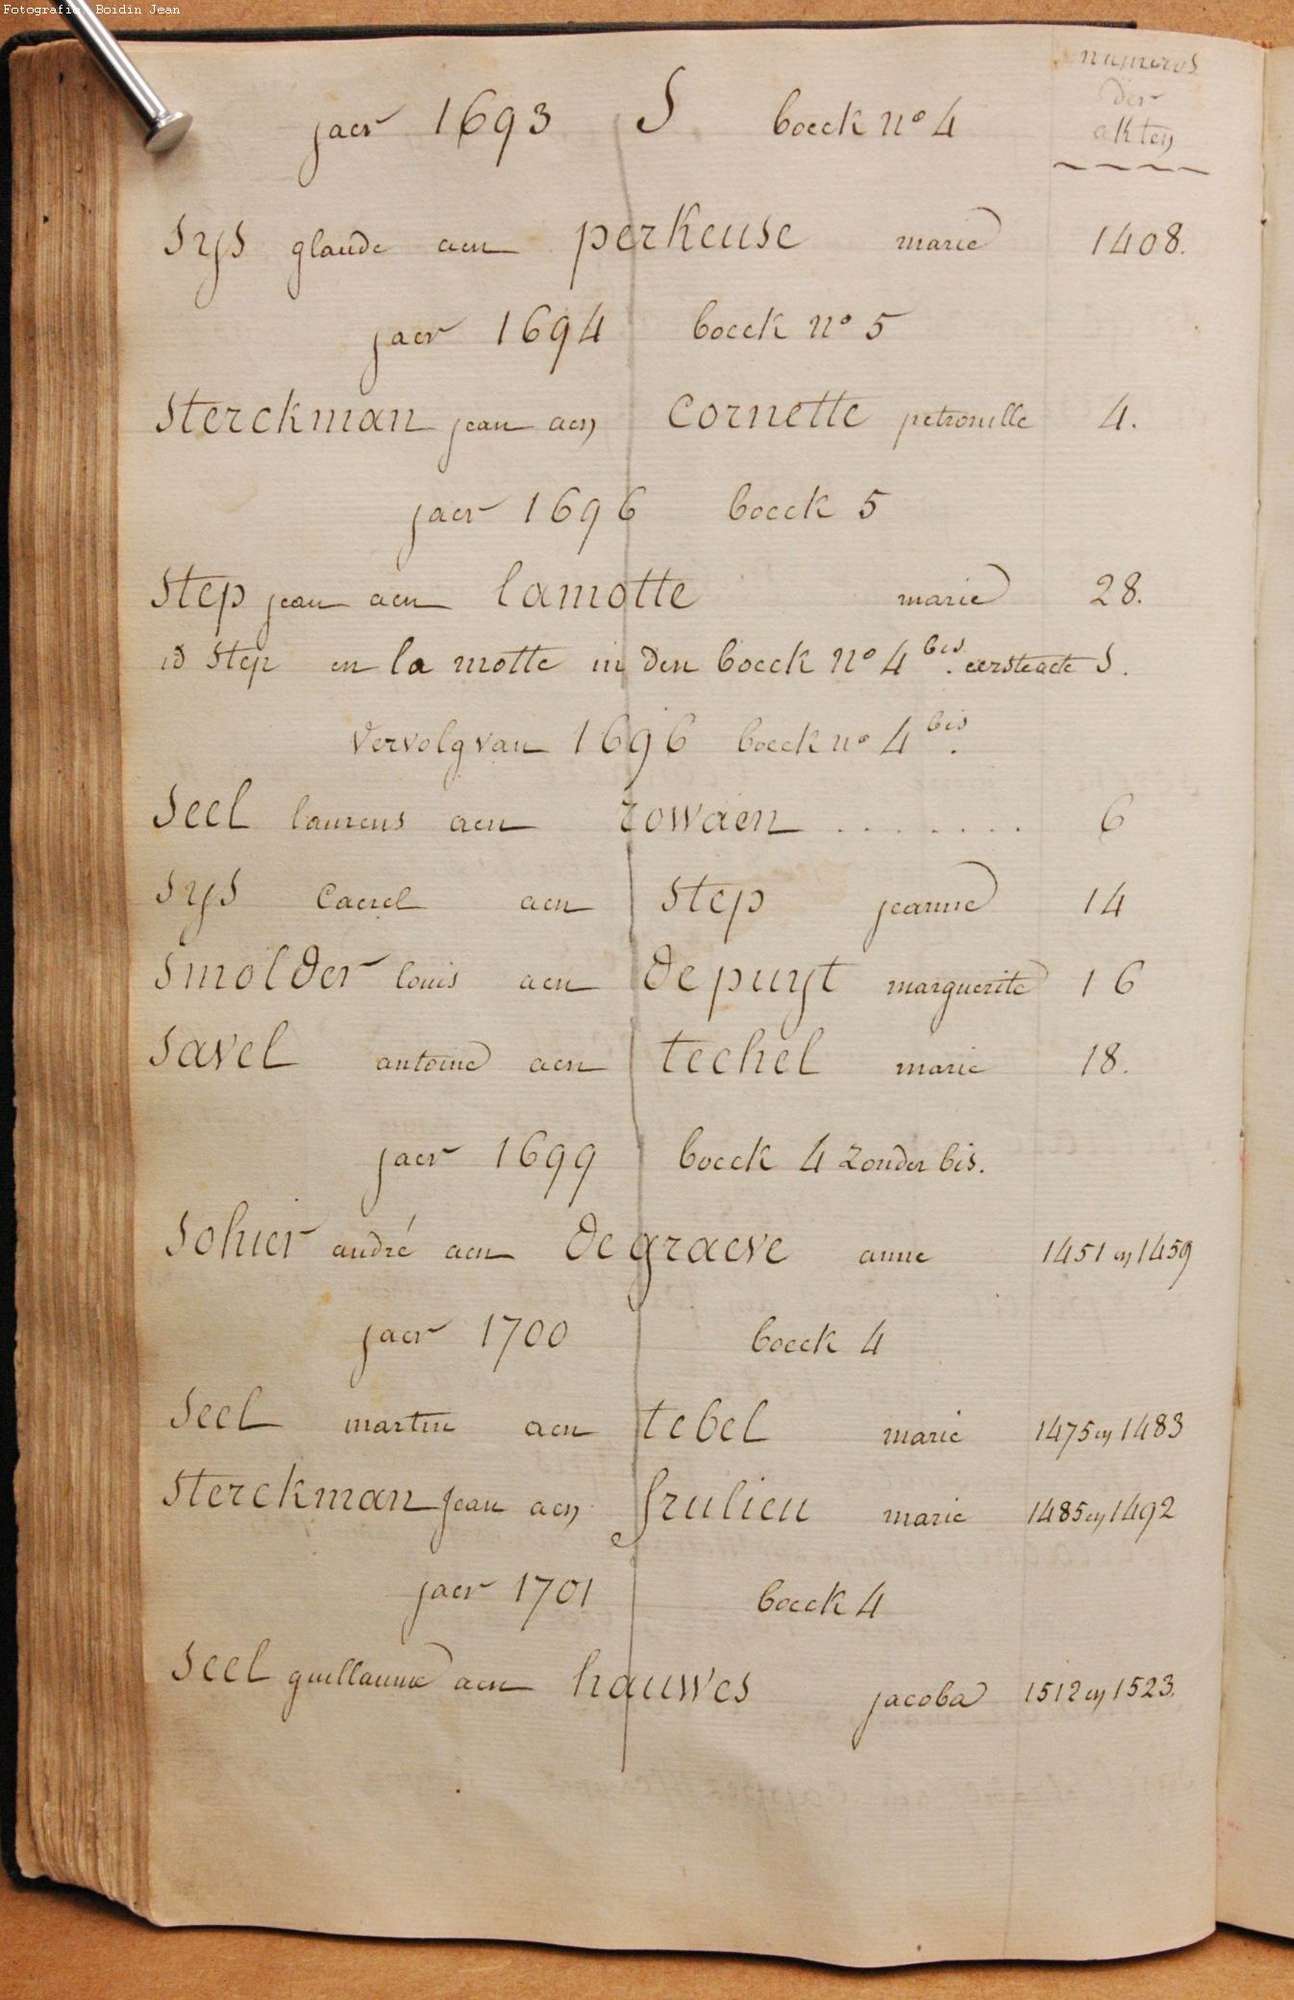 Fotografie Boidin Jean
numeros
der
akten
jaer 1693 S boeck nº 4
Sys glaude aen perkeuse marie 1408.
jaer 1694 boeck nº 5
Sterckman jean aen Cornette petronille 4.
jaer 1696 boeck 5
Step jean aen lamotte marie 28.
id Step en la motte in den boeck nº 4 bis. eerste acte S.
vervolg van 1696 boeck nº 4 bis.
Seel laurens aen rowaen ........ 6
Sys Caerel aen Step jeanne 14
Smolder louis aen de puyt marguerite 16
Savel antoine aen techel marie 18.
jaer 1699 boeck 4 zonder bis.
Sohier andré aen de graeve anne 1451 en 1459
jaer 1700 boeck 4
Seel martin aen tebel marie 1475 en 1483
Sterckman Jean aen frulieu marie 1485 en 1492
jaer 1701 boeck 4
Seel guillaume aen hauwes jacoba 1512 en 1523.